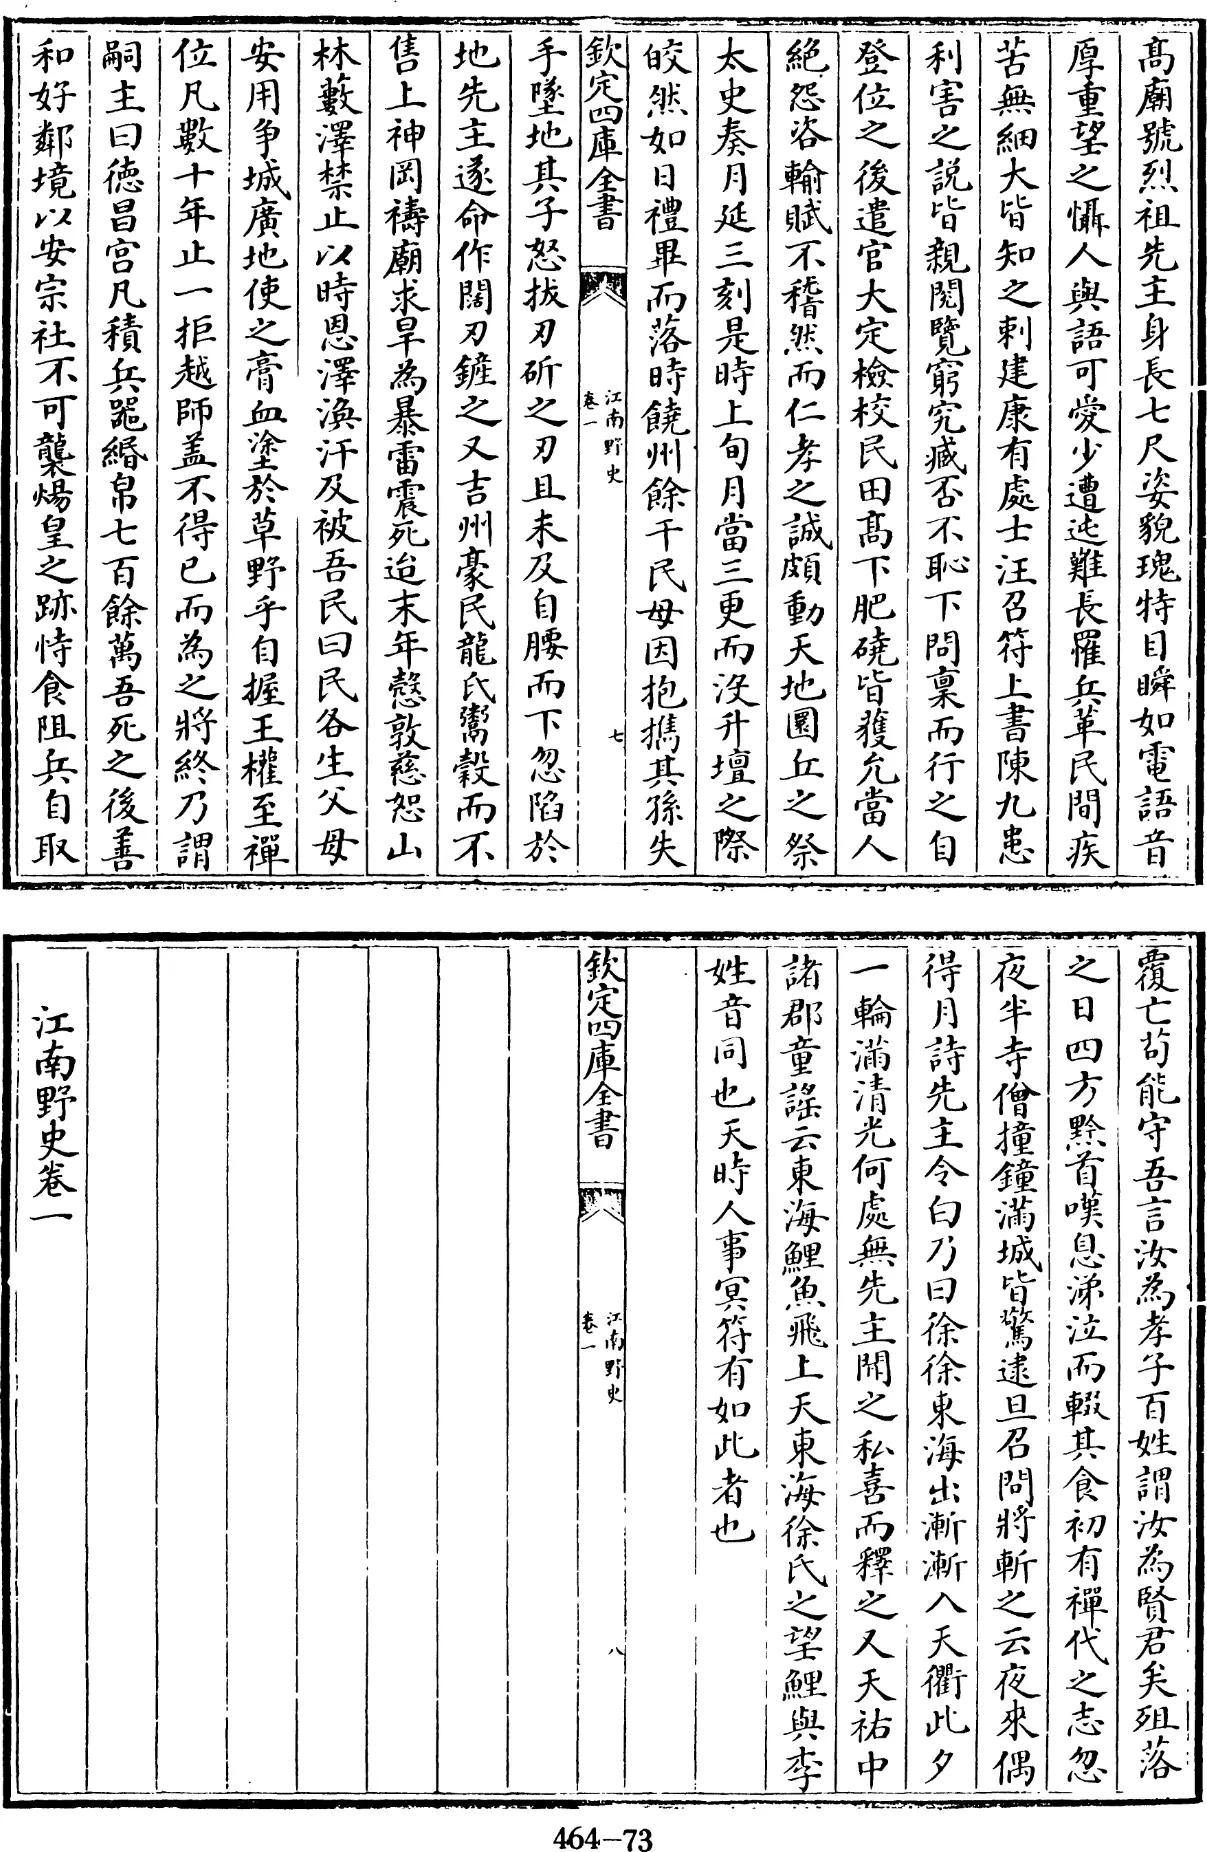 髙廟號烈祖先主身長七尺姿貌瑰特目瞬如電語音
厚重望之懾人與語可愛少遭迍難長罹兵革民間疾
苦無細大皆知之剌建康有處士汪召符上書陳九患
利害之説皆親閱覽窮究臧否不恥下問稟而行之自
登位之後遣官大定檢校民田髙下肥磽皆獲允當人
絶怨咨輸賦不稽然而仁孝之誠頗動天地圜丘之祭
太史奏月延三刻是時上旬月當三更而沒升壇之際
皎然如日禮畢而落時饒州餘干民母因抱攜其孫失
欽定四庫全書
江南野史
卷一
七
手墜地其子怒拔刃斫之刃且未及自腰而下忽陷於
地先主遂命作闊刃鏟之又吉州豪民龍氏鬻穀而不
售上神岡禱廟求旱為暴雷震死迨末年慤敦慈恕山
林藪澤禁止以時恩澤渙汗及被吾民曰民各生父母
安用争城廣地使之膏血塗於草野乎自握王權至禪
位凡數十年止一拒越師蓋不得已而為之將終乃謂
嗣主曰徳昌宫凡積兵噐緡帛七百餘萬吾死之後善
和好鄰境以安宗社不可襲煬皇之跡恃食阻兵自取
覆亡茍能守吾言汝為孝子百姓謂汝為賢君矣殂落
之日四方黔首嘆息涕泣而輟其食初有禪代之志忽
夜半寺僧撞鐘滿城皆驚逮旦召問將斬之云夜來偶
得月詩先主令白乃曰徐徐東海出漸漸入天衢此夕
一輪滿清光何處無先主聞之私喜而釋之又天祐中
諸郡童謡云東海鯉魚飛上天東海徐氏之望鯉與李
姓音同也天時人事冥符有如此者也
欽定四庫全書
江南野史
卷一
八
江南野史卷一
464-73